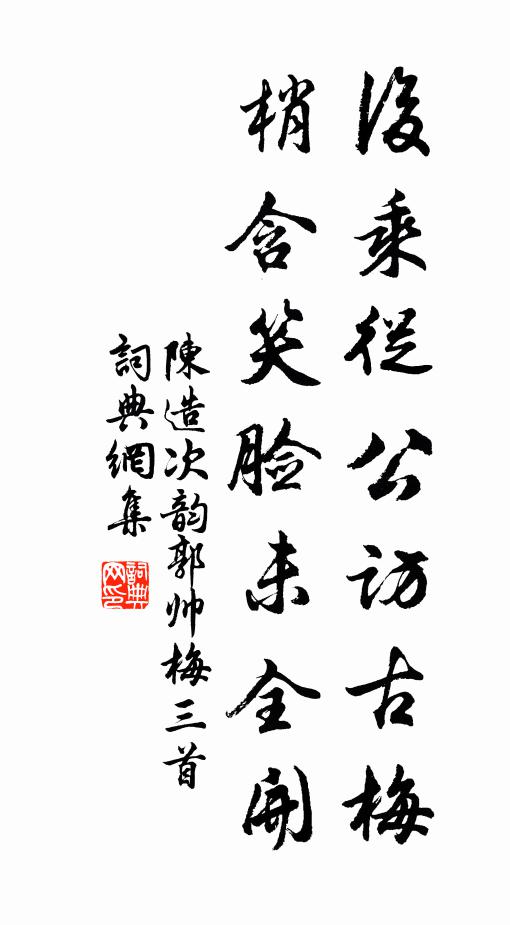 後乘從公訪古梅
梢含笑脸未全開
陳造次韵郭帅梅三首
詞典網集
詞典
网印